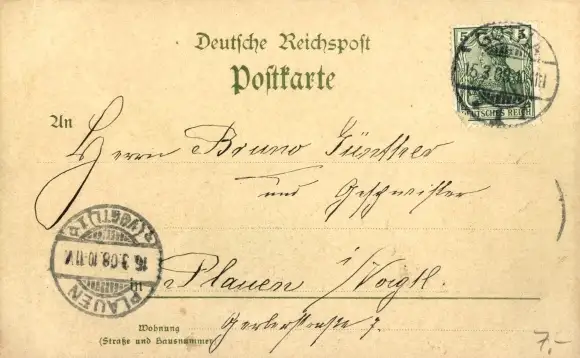 Deutsche Reichspost
Postkarte
5
GOTHA
15.3.08.
DEUTSCHES REICH
An
Herrn Bruno Günther
und Geschwister
in Plauen i/Vogtl.
(VOGTL)
16.3.08.10-11V.
PLAUEN
Wohnung
(Straße und Hausnummer)
Gerberstraße 7.
7.-